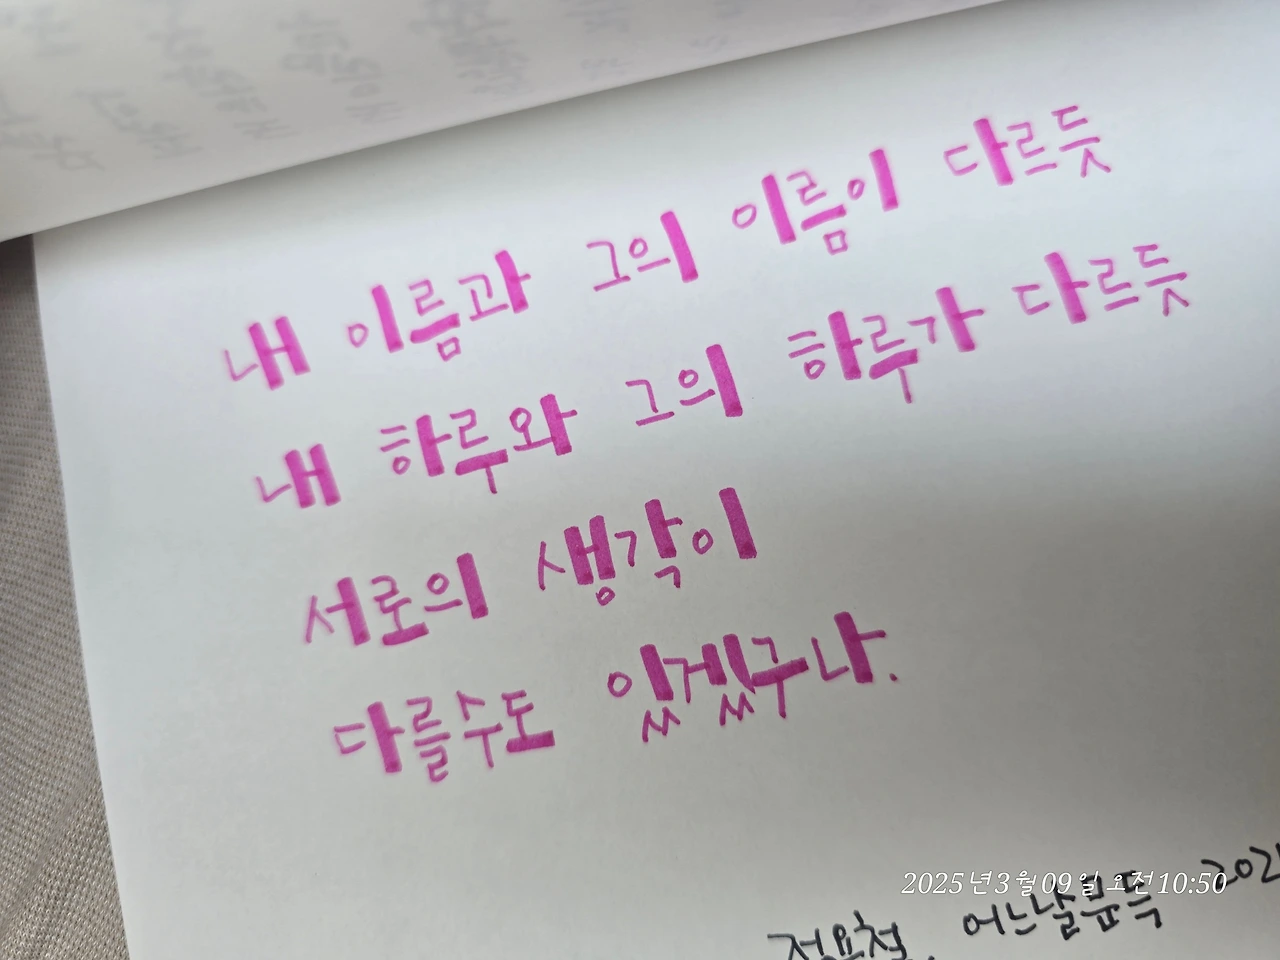 내 이름과 그의 이름이 다르듯
내 하루와 그의 하루가 다르듯
서로의 생각이
다를수도 있겠구나.
2025년 3월 09일 오전 10:50
어느날문득